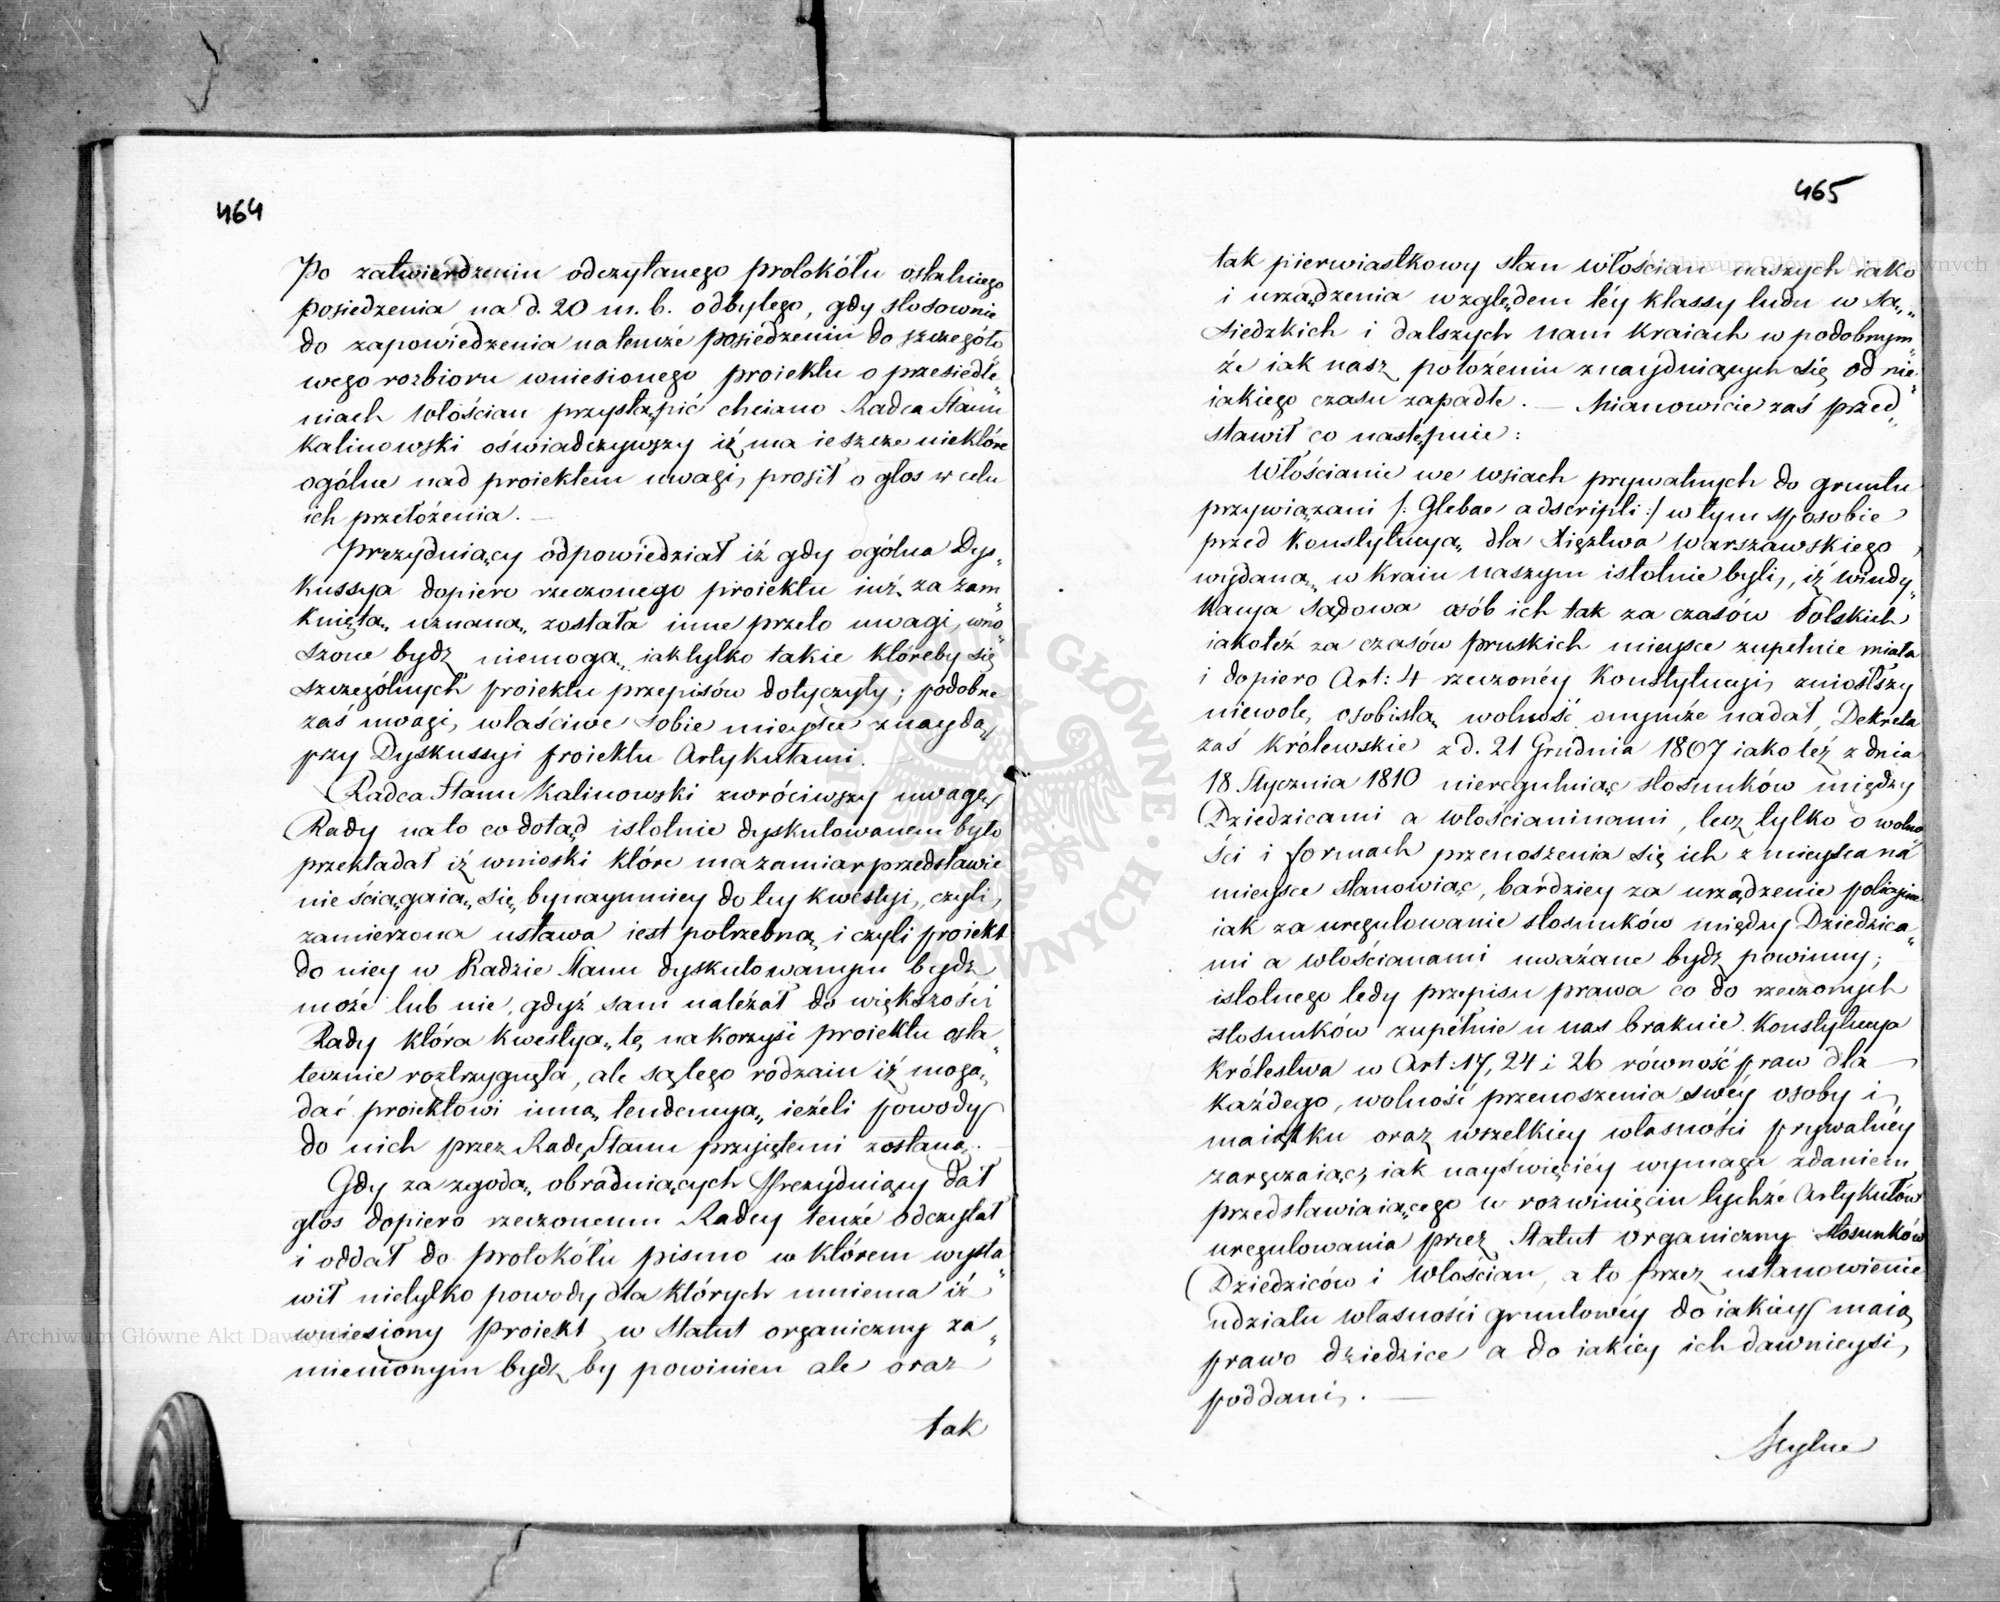 464
Po zatwierdzeniu odczytanego protokółu ostatniego
posiedzenia na d. 20 m. b. odbytego, gdy stosownie
do zapowiedzenia na temże posiedzeniu do szczegóło„
wego rozbioru wniesionego proiektu o przesiedle„
niach Włościan przystąpić chciano Radca Stanu
Kalinowski oświadczywszy iż ma ieszcze niektóre
ogólne nad proiektem uwagi, prosił o głos w celu
ich przełożenia. —
Prezyduiący odpowiedział iż gdy ogólna Dys„
kussya dopiero rzeczonego proiektu iuż za zam„
kniętą uznaną została inne przeto uwagi, wno„
szone bydź niemogą, iak tylko takie któreby się
szczególnych proiektu przepisów dotyczyły; podobne
zaś uwagi, właściwe sobie mieysce znaydą
przy Dyskussyi proiektu Artykułami. —
Radca Stanu Kalinowski zwróciwszy uwagę
Rady na to co dotąd istotnie dyskutowanem było
przekładał iż wnioski które ma zamiar przedstawić
nie ściągaią się bynaymniey do tey kwestyi, czyli
zamierzona ustawa iest potrzebną i czyli proiekt
do niey w Radzie Stanu dyskutowanym bydź
może lub nie, gdyż sam należał do większości
Rady która kwestyą tę na korzyść proiektu osta„
tecznie roztrzygnęła, ale są tego rodzaiu iż mogą
dać proiektowi inną tendencyą ieżeli powody
do nich przez Radę Stanu przyiętemi zostaną. —
Gdy za zgodą obraduiących Prezyduiący dał
głos dopiero rzeczonemu Radcy tenże odczytał
i oddał do protokółu pismo w którem wysta„
wił nietylko powody dla których mniema iż
wniesiony Proiekt w Statut organiczny za„
mienionym bydź by powinien ale oraz
tak
465
tak pierwiastkowy stan włościan naszych iako
i urządzenia względem téy klassy ludu w Są„
siedzkich i dalszych nam kraiach w podobnym„
że iak nasz położeniu znayduiących się od nie„
iakiego czasu zapadłe. — Mianowicie zaś przed„
stawił co następuie:
Włościanie we wsiach prywatnych do gruntu
przywiązani /: Glebae adscripti :/ w tym sposobie
przed Konstytucyą dla Xięztwa Warszawskiego
wydaną w kraiu naszym istotnie byli, iż windy„
kacya sądowa osób ich tak za czasów Polskich
iakoteż za czasów pruskich mieysce zupełnie miała
i dopiero Art: 4 rzeczonéy Konstytucyi, zniosłszy
niewolę, osobistą wolność onymże nadał, Dekreta
zaś Królewskie z d. 21 Grudnia 1807 iako téż z dnia
18 Stycznia 1810 nieregulując stosunków między
Dziedzicami a włościaninami, lecz tylko o wolno„
ści i formach przenoszenia się ich z mieysca na
mieysce stanowiąc, bardziey za urządzenie policyine
iak za uregulowanie stosunków między Dziedzica„
mi a włościanami uważane bydź powinny;
istotnego tedy przepisu prawa co do rzeczonych
stosunków zupełnie u nas braknie. Konstytucya
Królestwa w Art: 17, 24 i 26 równość praw dla —
każdego, wolność przenoszenia swéy osoby i
maiątku oraz wszelkiey własności prywatnéy
zaręczaiąc, iak nayświęciéy wymaga zdaniem
przedstawiaiącego w rozwinięciu tychże Artykułów
uregulowania przez Statut Organiczny stosunków
Dziedziców i Włościan, a to przez ustanowienie
udziału własności gruntowéy do iakiey maią
prawo dziedzice a do iakiey ich dawnieysi
poddani. —
Mylne
Archiwum Główne Akt Dawnych
Archiwum Główne Akt Dawnych